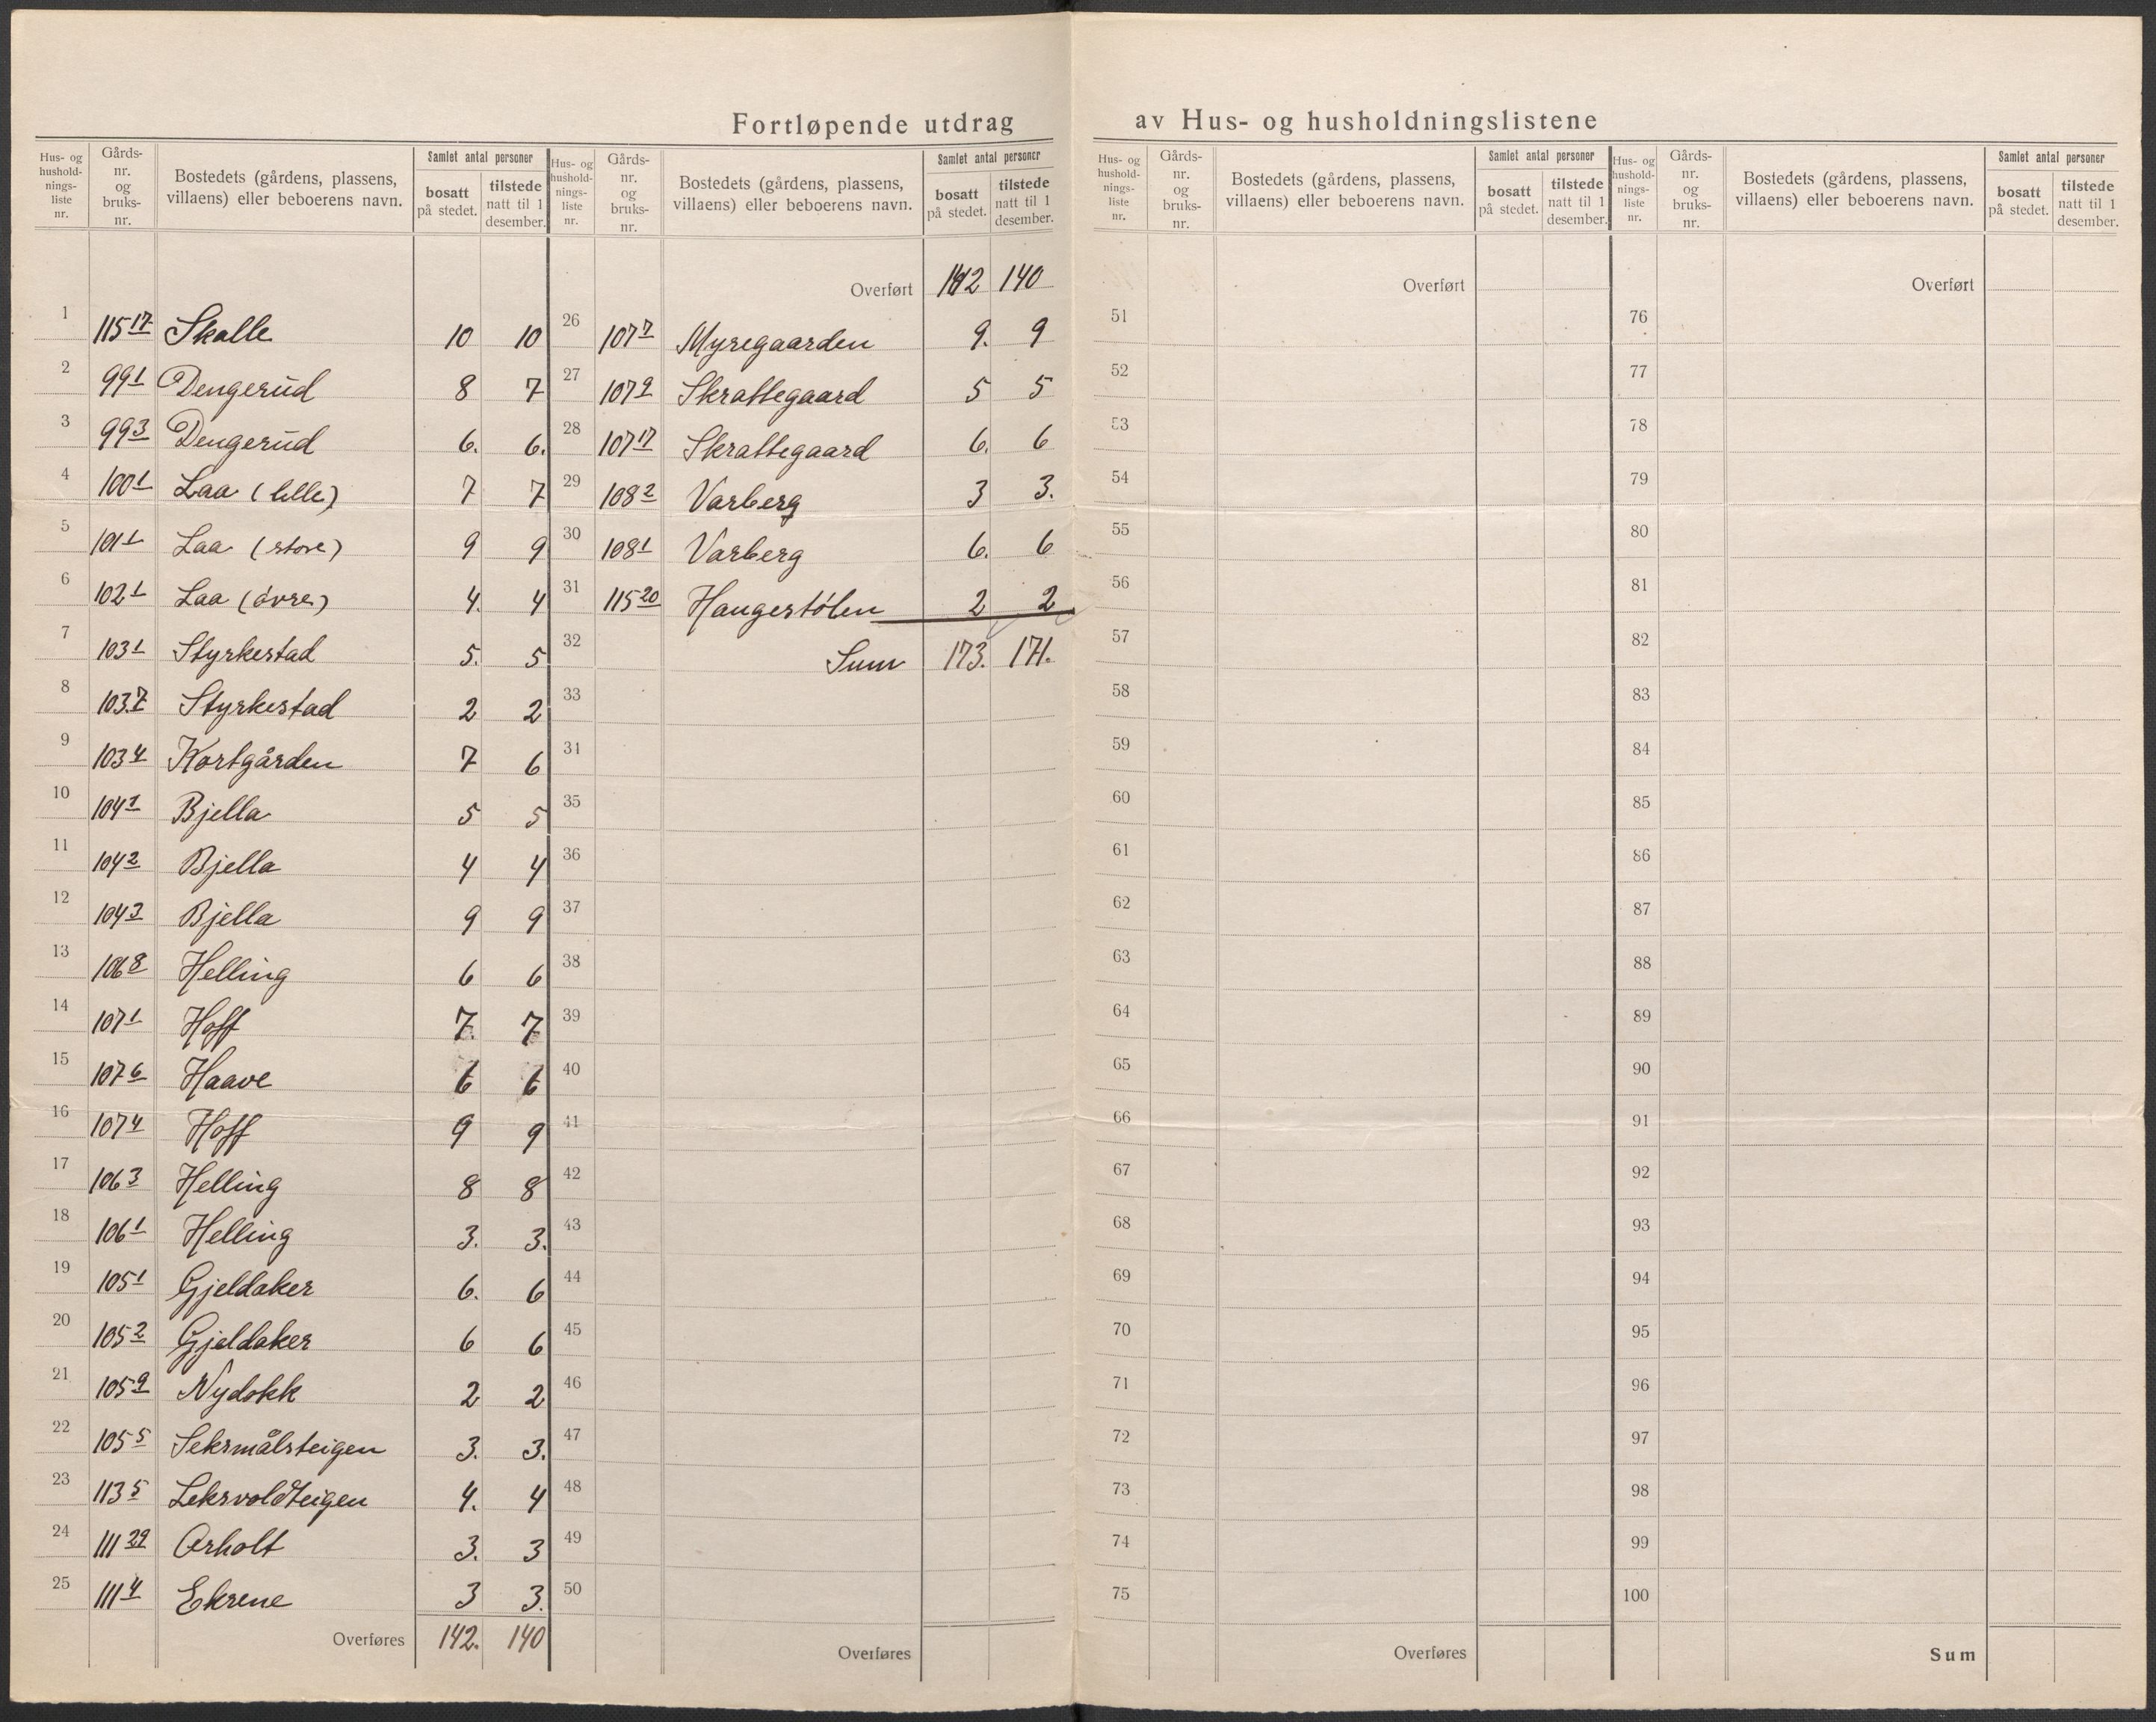 Fortløpende utdrag av Hus- og husholdningslistene
Hus- og hushold-nings-liste nr. | Gårds-nr. og bruks-nr. | Bostedets (gårdens, plassens, villaens) eller beboerens navn. | Samlet antal personer | bosatt på stedet. | tilstede natt til 1 desember.
1 115 17 Skalle 10 10
2 99 1 Dengerud 8 7
3 99 3 Dengerud 6. 6.
4 100 1 Laa (lille) 7 7
5 101 1 Laa (store) 9 9
6 102 1 Laa (øvre) 4. 4
7 103 1 Styrkestad 5. 5
8 103.7 Styrkestad 2 2
9 103 4 Kortgården 7 6
10 104 1 Bjella 5 5
11 104 2 Bjella 4 4
12 104 3 Bjella 9 9
13 106 8 Helling 6 6
14 107 1 Hoff 7. 7
15 107 6 Haave 6 6
16 107 4 Hoff 9 9
17 106 3 Helling 8 8
18 106 1 Helling 3. 3.
19 105 1 Gjeldaker 6. 6
20 105 2 Gjeldaker 6 6
21 105 9 Nydokk 2 2
22 105 5 Seksmålsteigen 3. 3.
23 113 5 Leksvoldteigen 4. 4
24 111 29 Ørholt 3. 3
25 111 4 Ekrene 3 3.
Overføres 142. 140
Hus- og hushold-nings-liste nr. | Gårds-nr. og bruks-nr. | Bostedets (gårdens, plassens, villaens) eller beboerens navn. | Samlet antal personer | bosatt på stedet. | tilstede natt til 1 desember.
Overført 142 140
26 107 7 Myregaarden 9. 9
27 107 9 Skrattegaard 5 5
28 107 17 Skrattegaard 6. 6
29 108 2 Varberg 3 3.
30 108 1 Varberg 6. 6
31 115 20 Haugestølen 2 2
32 Sum 173. 171.
33
31
35
36
37
38
39
40
41
42
43
44
45
46
47
48
49
50
Overføres
Hus- og hushold-nings-liste nr. | Gårds-nr. og bruks-nr. | Bostedets (gårdens, plassens, villaens) eller beboerens navn. | Samlet antal personer | bosatt på stedet. | tilstede natt til 1 desember.
Overført
51
52
53
54
55
56
57
58
59
60
61
62
63
64
65
66
67
68
69
70
71
72
73
74
75
Overføres
Hus- og hushold-nings-liste nr. | Gårds-nr. og bruks-nr. | Bostedets (gårdens, plassens, villaens) eller beboerens navn. | Samlet antal personer | bosatt på stedet. | tilstede natt til 1 desember.
Overført
76
77
78
79
80
81
82
83
84
85
86
87
88
89
90
91
92
93
94
95
96
97
98
99
100
Sum